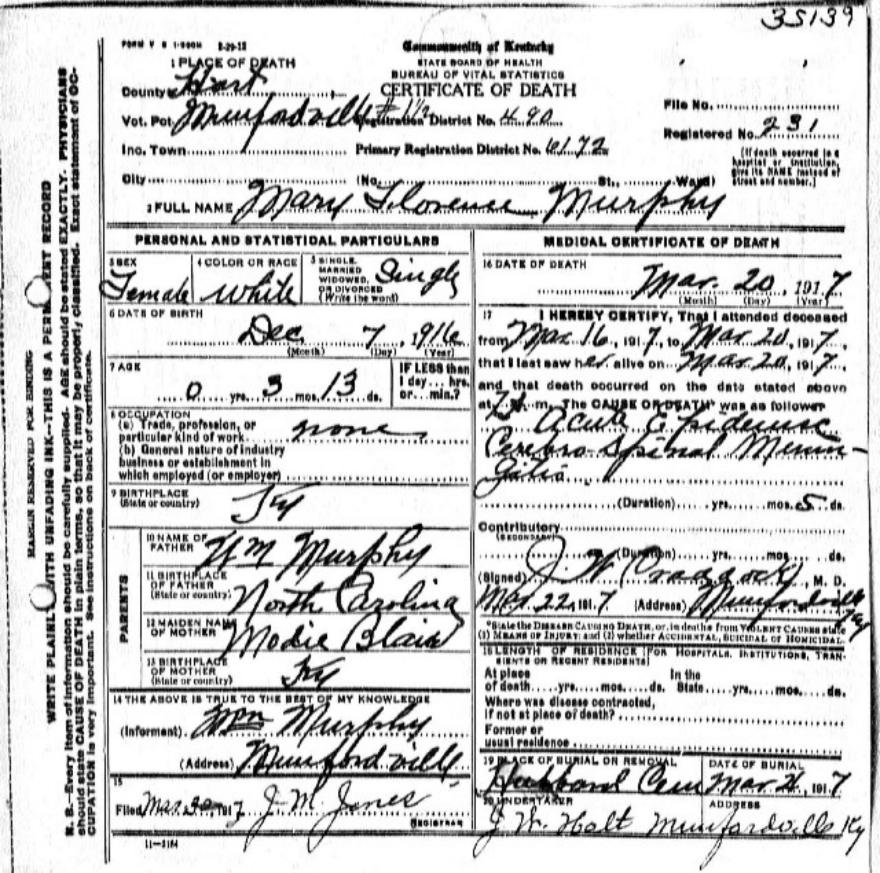 35139
FORM V S 1-500M 8-29-12
Commonwealth of Kentucky
STATE BOARD OF HEALTH
BUREAU OF VITAL STATISTICS
CERTIFICATE OF DEATH
1 PLACE OF DEATH
County Hart
Vot. Pct. Munfordville #1½ Registration District No. 490
File No.
Registered No. 231
Inc. Town Primary Registration District No. 6172
(If death occurred in a hospital or institution, give its NAME instead of street and number.)
City (No. St., Ward)
2 FULL NAME Mary Florence Murphy
PERSONAL AND STATISTICAL PARTICULARS
3 SEX Female
4 COLOR OR RACE White
5 SINGLE, MARRIED WIDOWED, OR DIVORCED (Write the word) Single
6 DATE OF BIRTH
Dec 7, 1916
(Month) (Day) (Year)
7 AGE
0 yrs. 3 mos. 13 ds.
IF LESS than 1 day... hrs. or... min.?
8 OCCUPATION
(a) Trade, profession, or particular kind of work none
(b) General nature of industry business or establishment in which employed (or employer)
9 BIRTHPLACE
(State or country) Ky
PARENTS
10 NAME OF FATHER Wm Murphy
11 BIRTHPLACE OF FATHER (State or country) North Carolina
12 MAIDEN NAME OF MOTHER Modie Blair
13 BIRTHPLACE OF MOTHER (State or country) Ky
14 THE ABOVE IS TRUE TO THE BEST OF MY KNOWLEDGE
(Informant) Wm Murphy
(Address) Munfordville
15
Filed Mar 1917 J. M. Jones
REGISTRAR
11-3184
MEDICAL CERTIFICATE OF DEATH
16 DATE OF DEATH
Mar. 20, 1917
(Month) (Day) (Year)
17 I HEREBY CERTIFY, That I attended deceased
from Mar 16, 1917, to Mar 20, 1917,
that I last saw her alive on Mar 20, 1917,
and that death occurred on the date stated above
at m. The CAUSE OF DEATH* was as follows
Acute Epidemic
Cerebro Spinal Menin-
gitis
(Duration) yrs. mos. 5 ds.
Contributory
(SECONDARY)
(Duration) yrs. mos. ds.
(Signed) J. W. Craddock, M. D.
Mar 22, 1917 (Address) Munfordville Ky
*State the DISEASE CAUSING DEATH, or, in deaths from VIOLENT CAUSES state
(1) MEANS OF INJURY; and (2) whether ACCIDENTAL, SUICIDAL OR HOMICIDAL.
18 LENGTH OF RESIDENCE (FOR HOSPITALS, INSTITUTIONS, TRANSIENTS OR RECENT RESIDENTS)
At place of death yrs. mos. ds. In the State yrs. mos. ds.
Where was disease contracted,
if not at place of death?
Former or
usual residence
19 PLACE OF BURIAL OR REMOVAL Hubbard Cem
DATE OF BURIAL Mar 21, 1917
20 UNDERTAKER J. W. Holt
ADDRESS Munfordville Ky
MARGIN RESERVED FOR BINDING
WRITE PLAINLY WITH UNFADING INK—THIS IS A PERMANENT RECORD
N. B.—Every item of information should be carefully supplied. AGE should be stated EXACTLY. PHYSICIANS
should state CAUSE OF DEATH in plain terms, so that it may be properly classified. Exact statement of OC-
CUPATION is very important. See instructions on back of certificate.